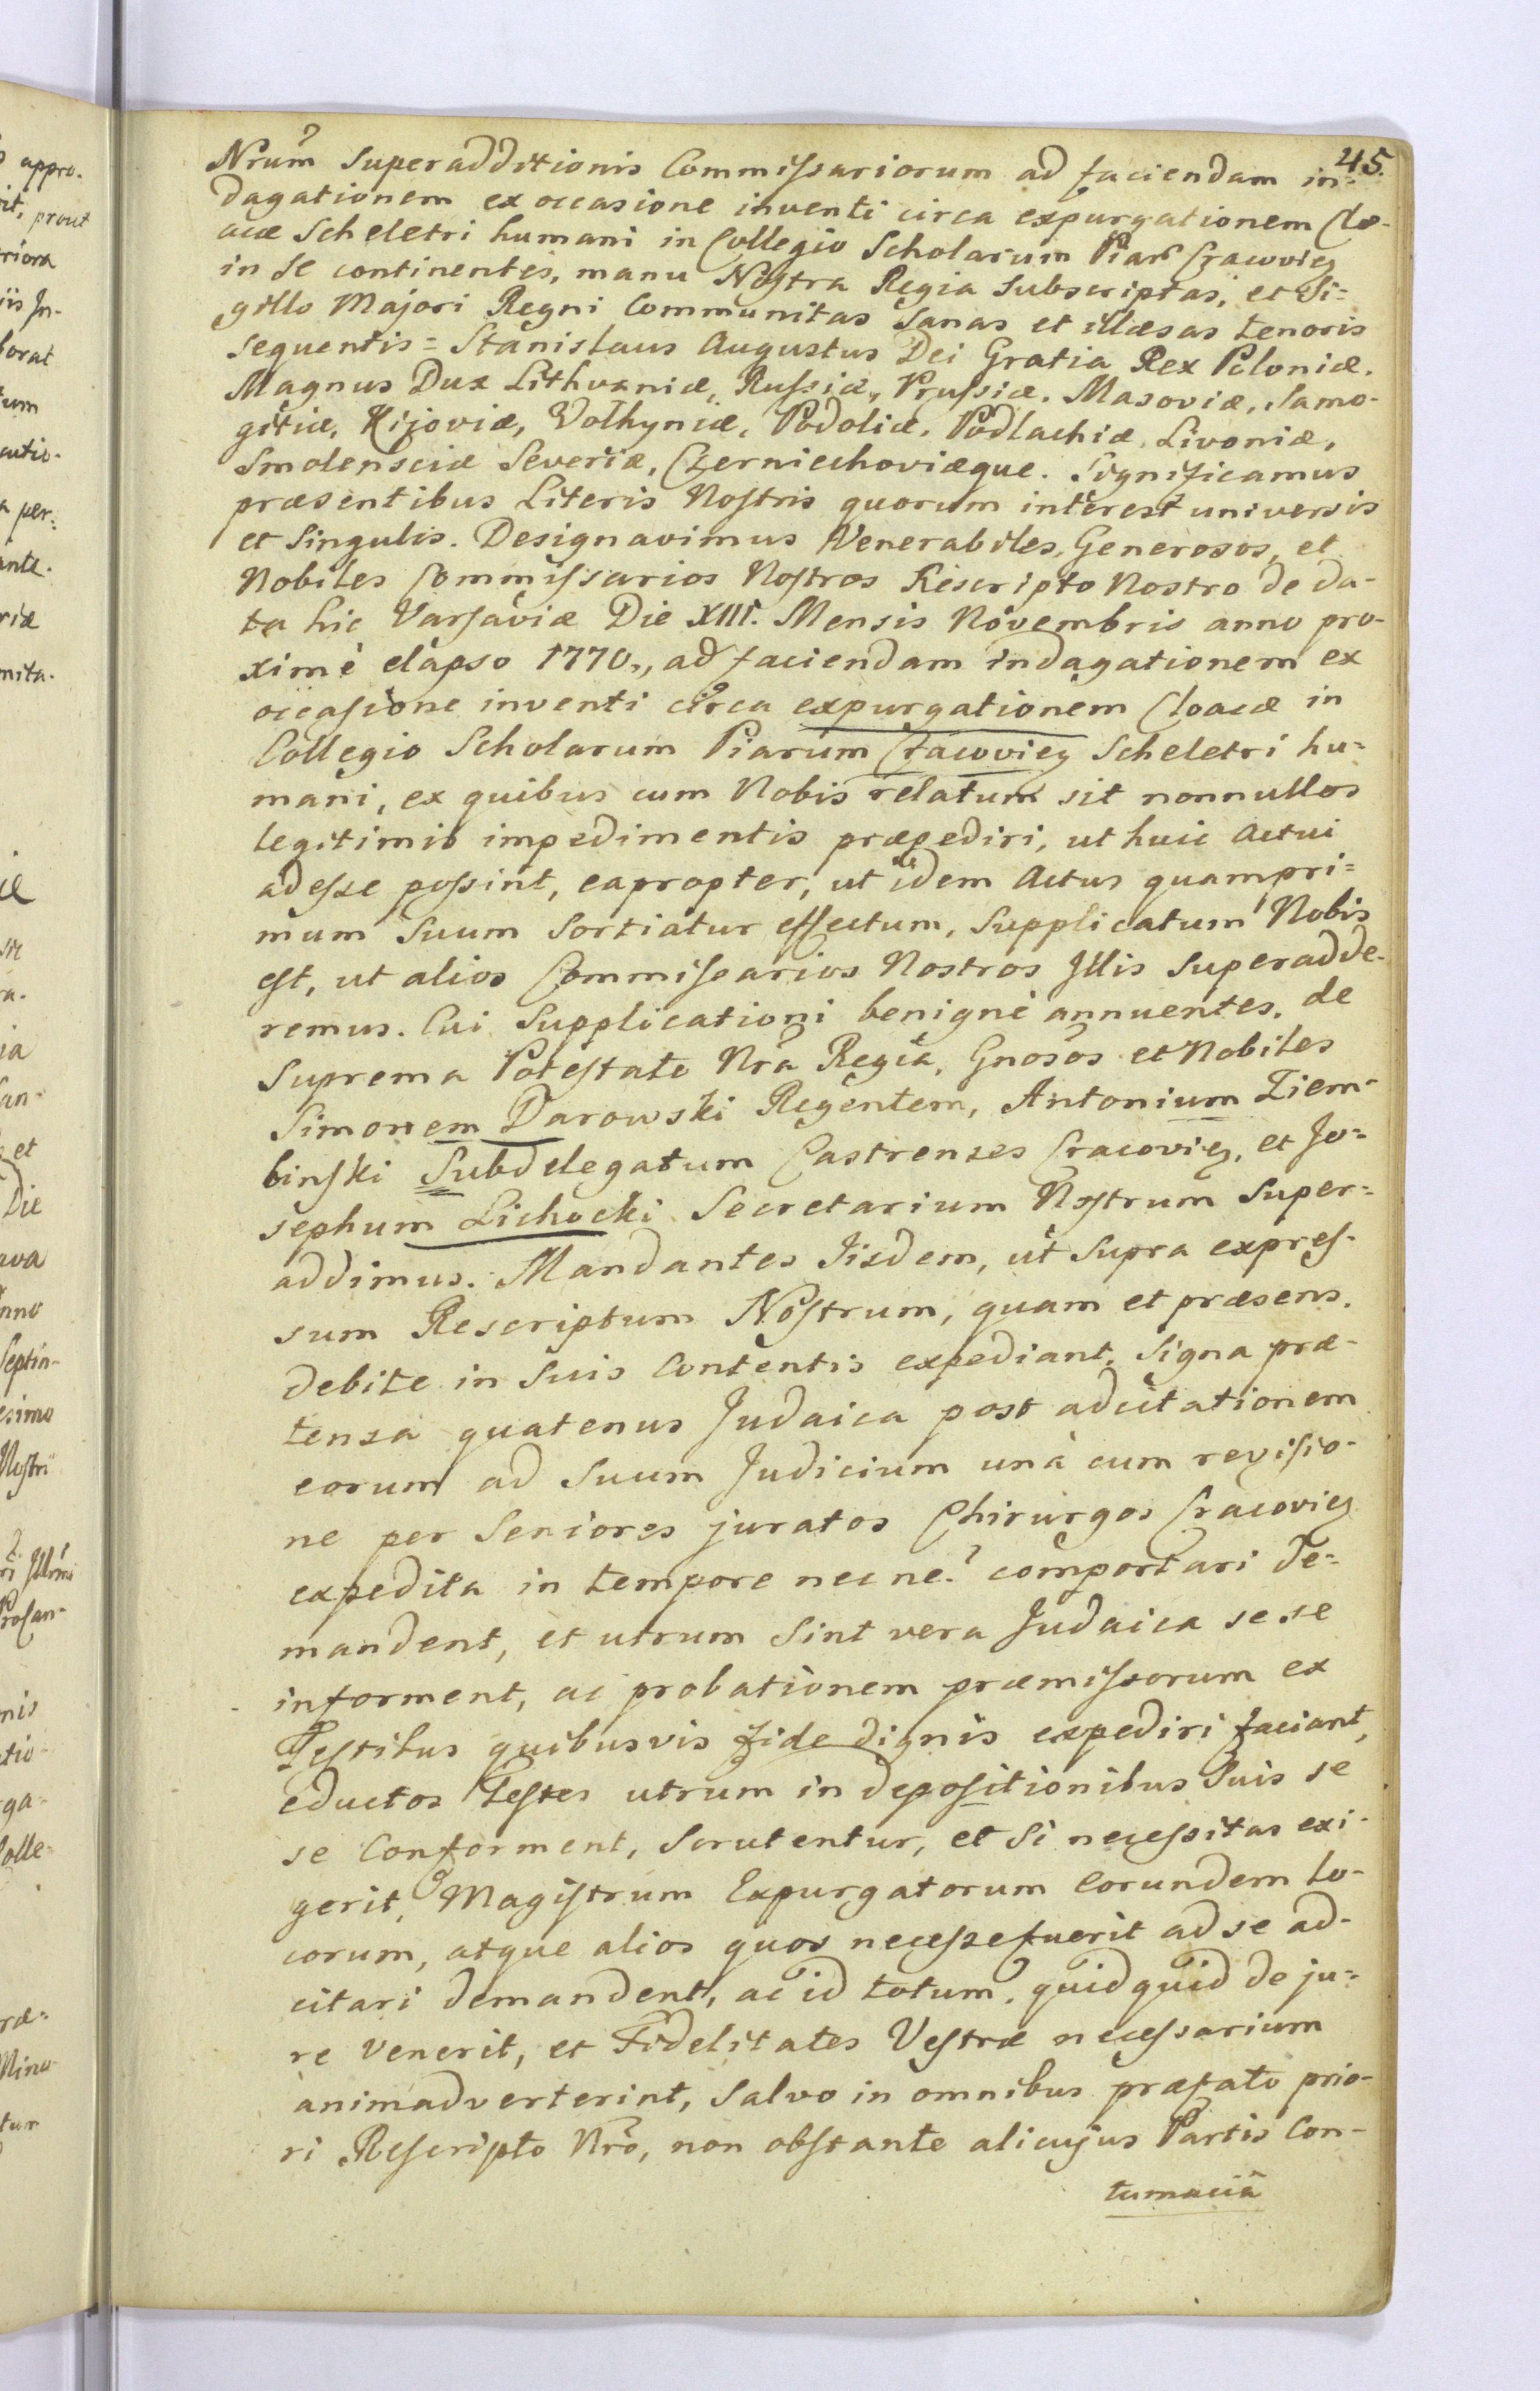 45.
Nrum̃ Superadditionis Commissariorum ad faciendam in-
dagationem ex occasione inventi circa expurgationem Clo-
acæ Scheletri humani in Collegio Scholarum Piar̃ Cracovien̨
in se continentes, manu Nostra Regia subscriptas, et Si=
gillo Majori Regni Communitas Sanas et illæsas tenoris
sequentis = Stanislaus Augustus Dei Gratia Rex Poloniæ.
Magnus Dux Lithvaniæ, Russiæ, Prussiæ. Masoviæ, Samo-
gitiæ, Kijoviæ, Volhyniæ, Podoliæ, Podlachiæ, Livoniæ,
Smolensciæ Severiæ, Czerniechoviæque. Significamus
præsentibus Literis Nostris quorum interest universis
et Singulis. Designavimus Venerabiles, Generosos, et
Nobiles Commissarios Nostros Rescripto Nostro de da-
ta hic Varsaviæ Die XIII. Mensis Novembris anno pro-
ximè elapso 1770., ad faciendam indagationem ex
occasione inventi circa expurgationem Cloacæ in
Collegio Scholarum Piarum Cracovien̨ Scheletri hu=
mani, ex quibus cum Nobis relatum sit nonnullos
legitimis impedimentis præpediri, ut huic actui
adesse possint, eapropter, ut idem Actus quampri=
mum suum sortiatur effectum, supplicatum Nobis
est, ut alios Commissarios Nostros Illis superadde-
remus. Cui Supplicationi benignè annuentes, de
Suprema Potestate Nrã Regia, Gnosos et Nobiles
Simonem Darowski Regentem, Antonium Ziem-
binski Subdelegatum Castrenses Cracovien̨, et Jo=
sephum Lichocki Secretarium Nostrum super=
addimus. Mandantes Iisdem, ut supra expres-
sum Rescriptum Nostrum, quam et præsens.
debite in Suis Contentis expediant, Signa præ-
tensa quatenus Judaica post adcitationem
eorum ad Suum Judicium unà cum revisio-
ne per Seniores juratos Chirurgos Cracovien̨
expedita in tempore nec ne? comportari de=
mandent, et utrum Sint vera Judaica sese
informent, ac probationem præmissorum ex
Testibus quibusvis fide dignis expediri faciant,
eductos Testes utrum in depositionibus Suis se
se Conforment, Scrutentur, et Si necessitas exi-
gerit, Magistrum Expurgatorum Eorundem lo-
corum, atque alios quos necesse fuerit ad se ad-
citari demandent, ac id totum, quidquid de ju=
re venerit, et Fidelitates Vestræ necessarium
animadverterint, Salvo in omnibus præfato prio-
ri Rescripto Nrõ, non obstante alicujus Partis Con-
tumaciâ